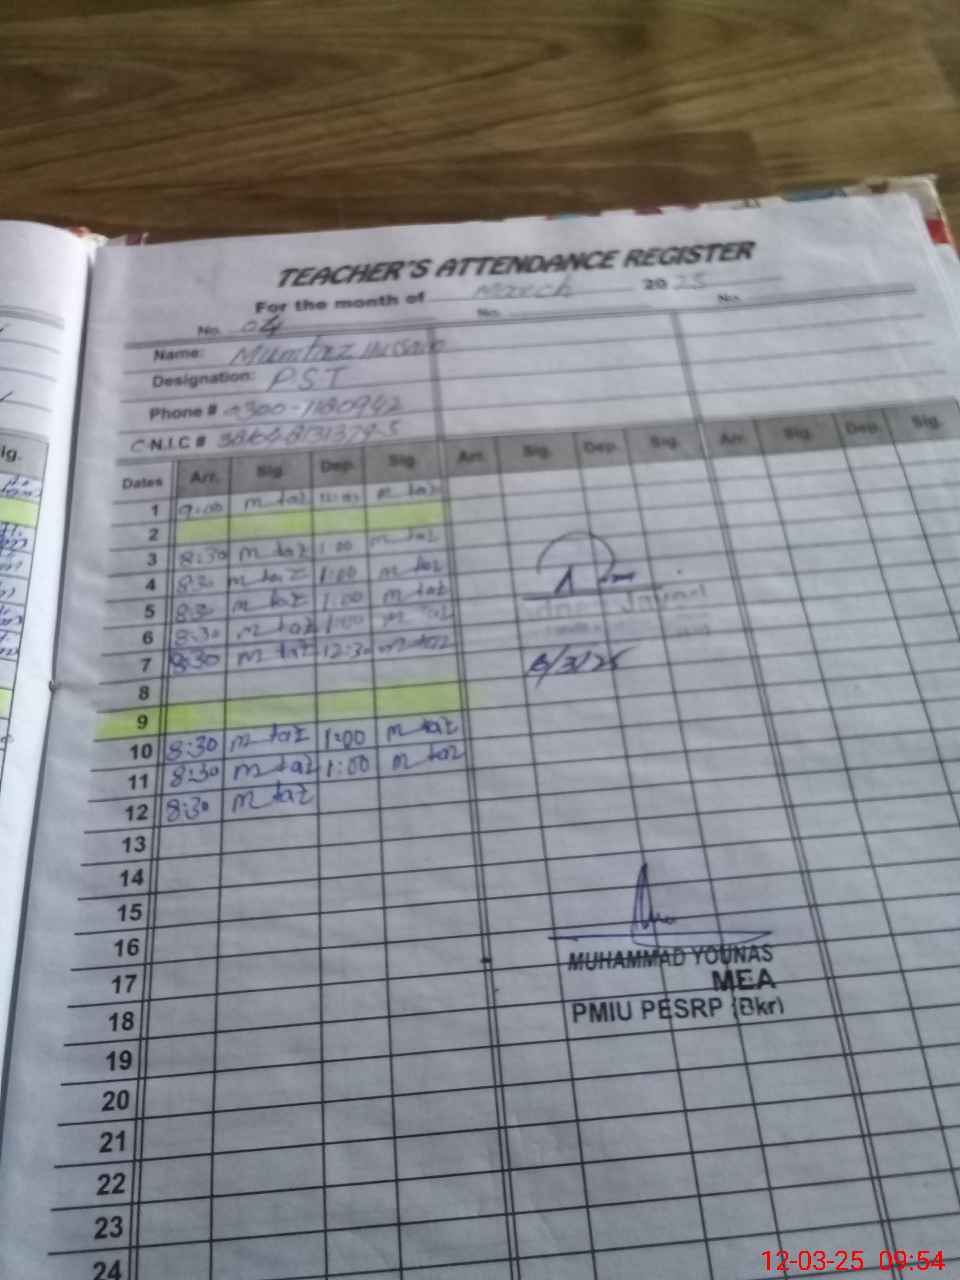 TEACHER'S ATTENDANCE REGISTER
For the month of March 2025
No. 04 No. No.
Name: Mumtaz Hussain
Designation: PST
Phone #
C.N.I.C #
Dates Arr. Sig. Dep. Sig. Arr. Sig. Dep. Sig. Arr. Sig. Dep. Sig.
1 9:00 m taz m taz
2
3 8:30 m taz 1:00 m taz
4 8:30 m taz 1:00 m taz
5 8:30 m taz 1:00 m taz
6 8:30 m taz 1:00 m taz
7 8:30 m taz 12:30 m taz
8
9
10 8:30 m taz 1:00 m taz
11 8:30 m taz 1:00 m taz
12 8:30 m taz
13
14
15
16
17
18
19
20
21
22
23
24
MUHAMMAD YOUNAS
MEA
PMIU PESRP (Bkr)
12-03-25 09:54